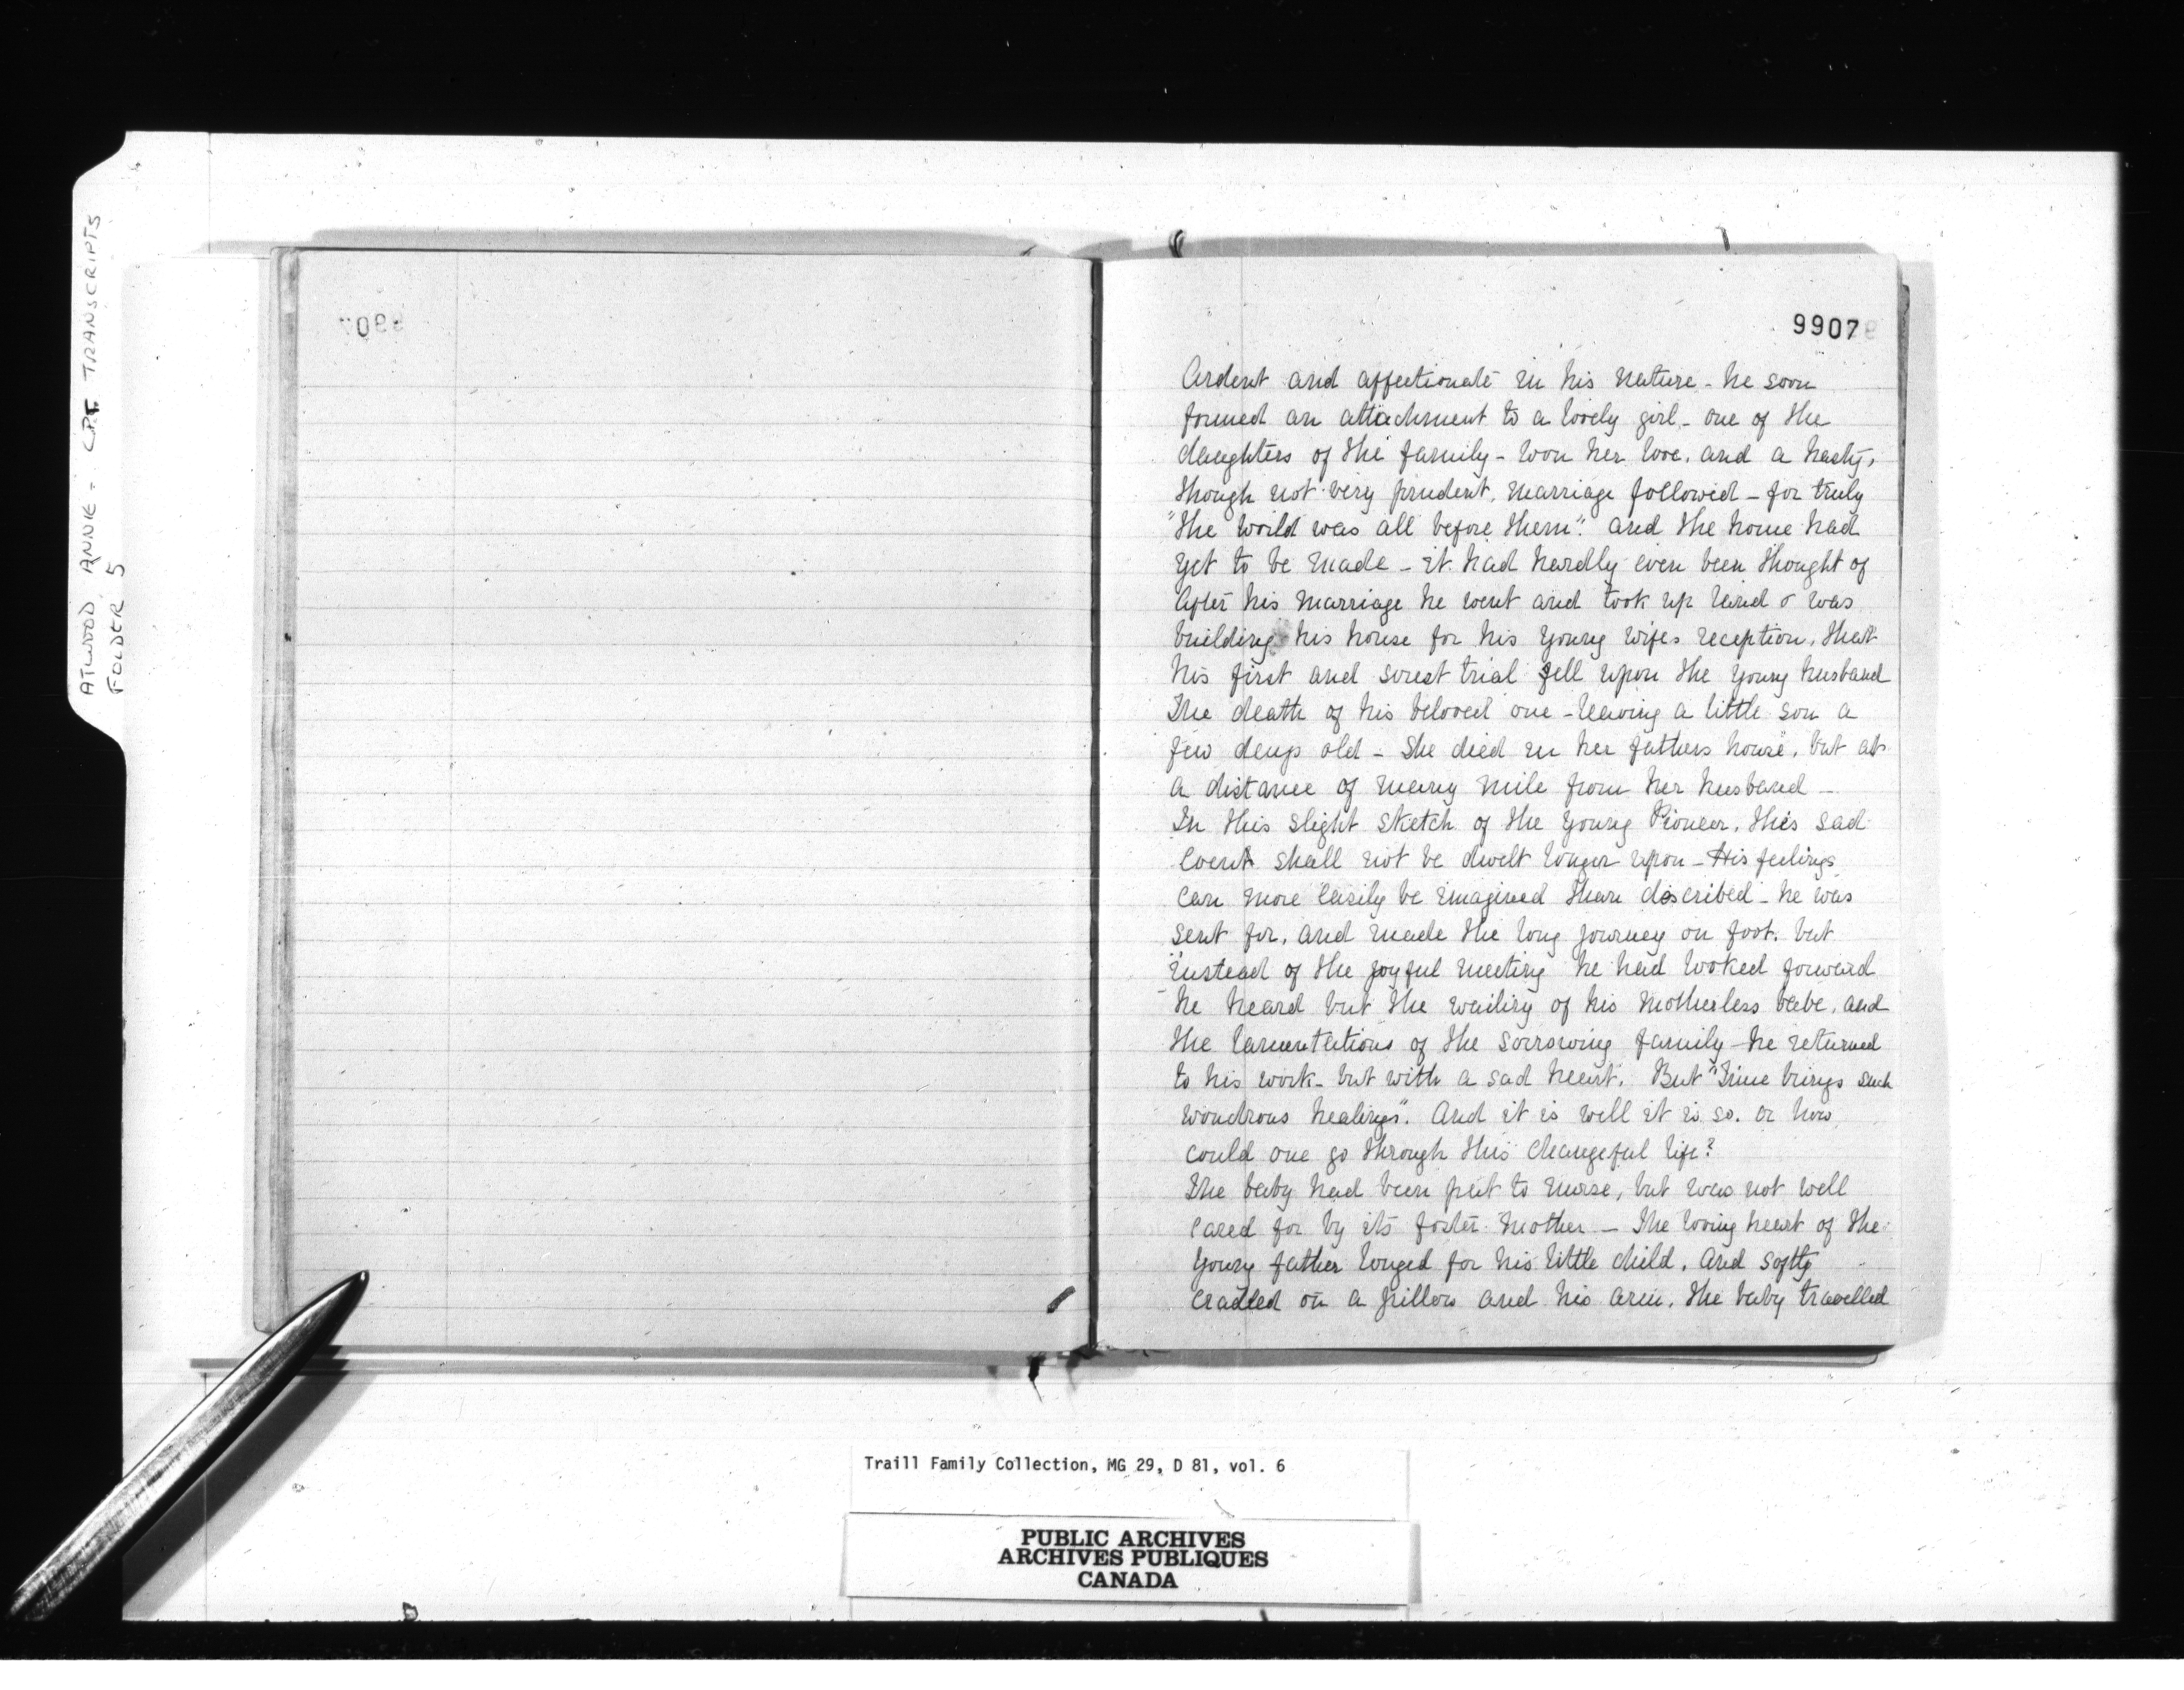 ATWOOD, ANNIE - CPT TRANSCRIPTS
FOLDER 5
9907
Ardent and affectionate in his nature - he soon
formed an attachment to a lovely girl - one of the
daughters of the family - won her love. and a hasty,
though not very prudent, marriage followed - for truly
"the world was all before them". and the home had
yet to be made - it had hardly even been thought of
After his marriage he went and took up land & was
building his house for his young wifes reception, that
his first and sorest trial fell upon the young husband
The death of his beloved one - leaving a little son a
few days old - She died in her fathers house, but at
a distance of many mile from her husband -
In this slight sketch of the young Pioneer, this sad
event shall not be dwelt longer upon - His feelings
can more easily be imagined than described - he was
sent for, and made the long journey on foot. but
instead of the joyful meeting he had looked forward
he heard but the wailing of his motherless babe, and
the lamentations of the sorrowing family - he returned
to his work - but with a sad heart. But "Time brings such
wondrous healings". And it is well it is so. or how
could one go through this changeful life?
The baby had been put to nurse, but was not well
cared for by its foster mother - The loving heart of the
young father longed for his little child, and softly
cradled on a pillow and his arm, the baby travelled
Traill Family Collection, MG 29, D 81, vol. 6
PUBLIC ARCHIVES
ARCHIVES PUBLIQUES
CANADA